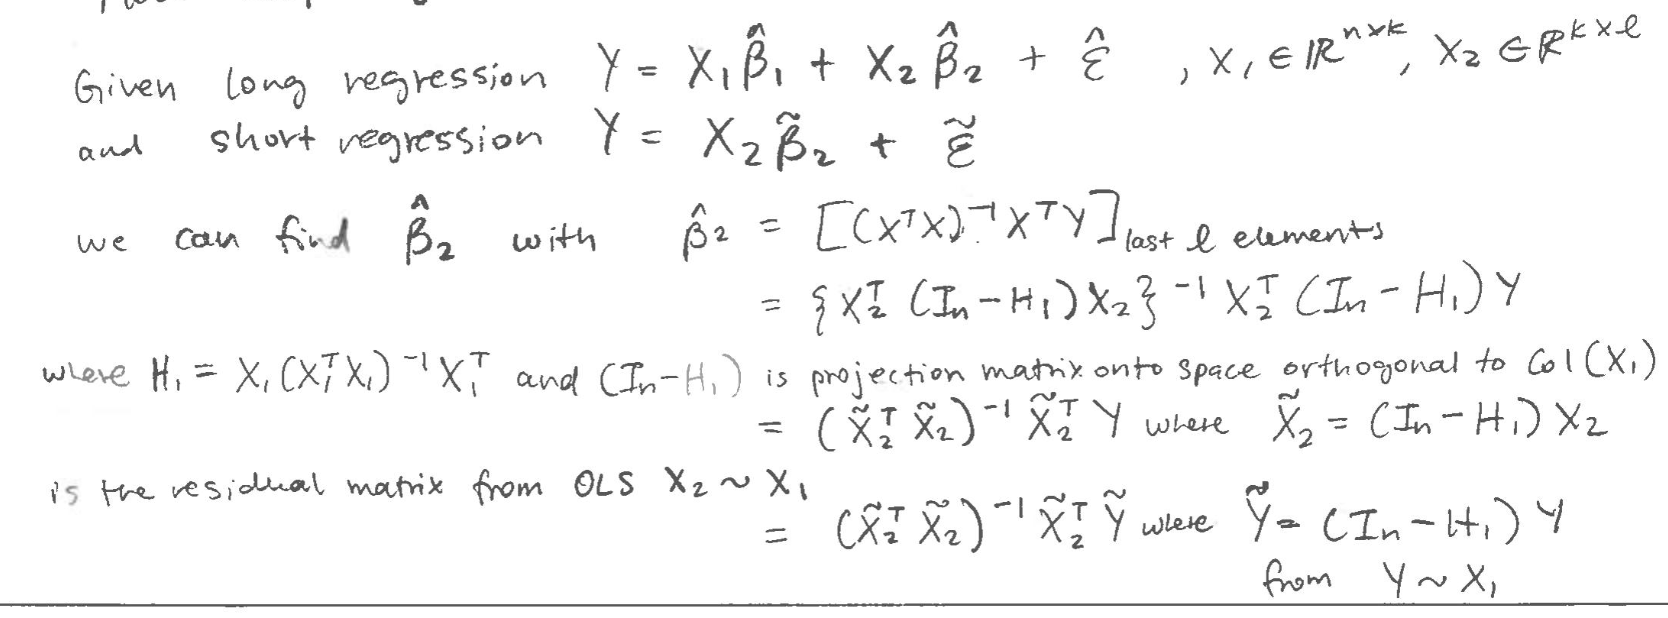 Given long regression Y = X₁β̂₁ + X₂β̂₂ + ε̂ , X₁ ∈ ℝⁿˣᵏ, X₂ ∈ ℝᵏˣˡ
and short regression Y = X₂β̃₂ + ε̃
we can find β̂₂ with β̂₂ = [(XᵀX)⁻¹XᵀY] last l elements
= {X₂ᵀ (In - H₁) X₂}⁻¹ X₂ᵀ (In - H₁) Y
where H₁ = X₁(X₁ᵀX₁)⁻¹X₁ᵀ and (In-H₁) is projection matrix onto space orthogonal to Col(X₁)
= (X̃₂ᵀ X̃₂)⁻¹ X̃₂ᵀ Y where X̃₂ = (In-H₁) X₂
is the residual matrix from OLS X₂ ~ X₁
= (X̃₂ᵀ X̃₂)⁻¹ X̃₂ᵀ Ỹ where Ỹ = (In-H₁) Y
from Y ~ X₁